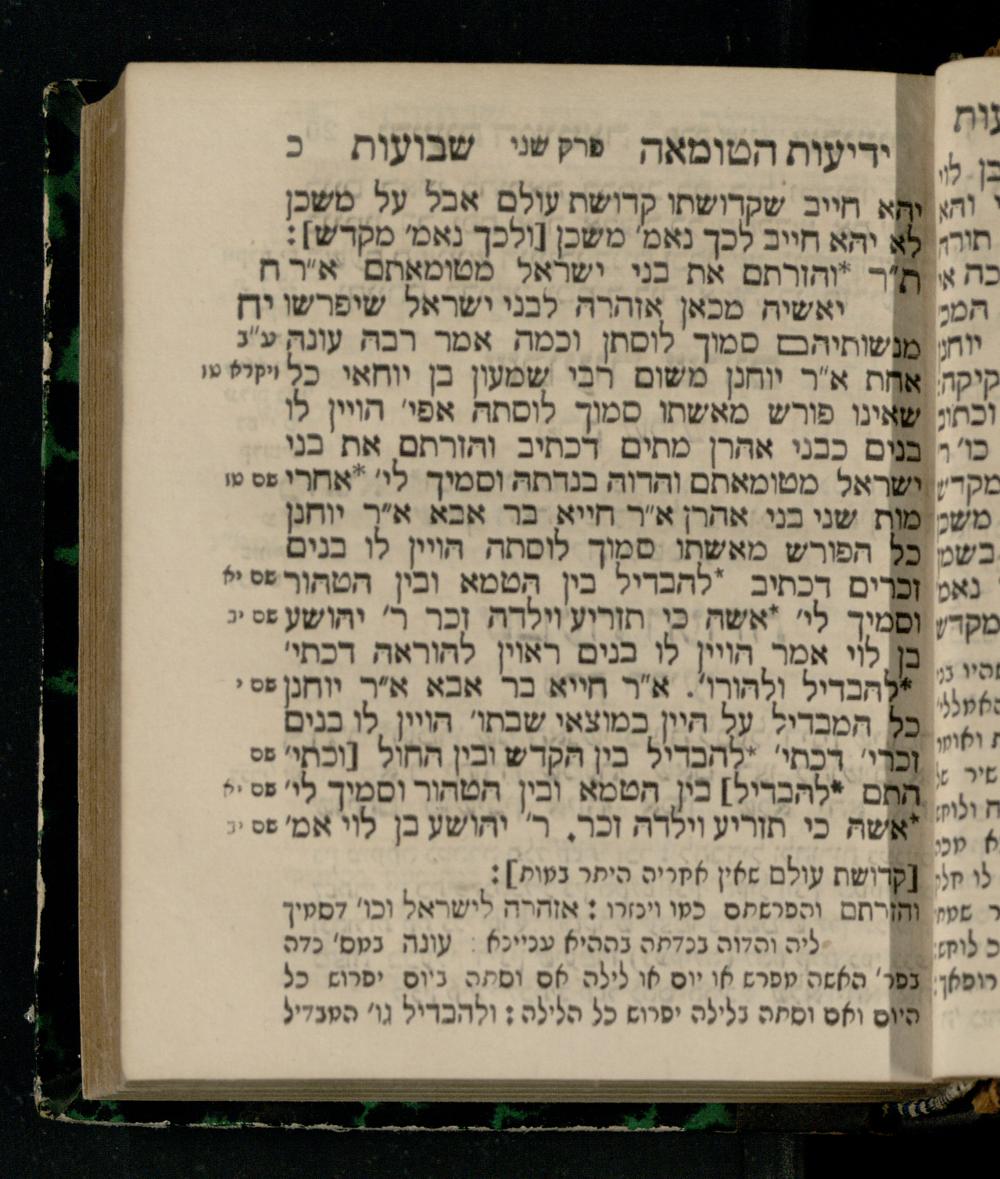 ידיעות הטומאה פרק שני שבועות כ
יהא חייב שקדושתו קדושת עולם אבל על משכן
לא יהא חייב לכך נאמ׳ משכן [ולכך נאמ׳ מקדש]:
ת״ר *והזרתם את בני ישראל מטומאתם א״ר ח
יאשיה מכאן אזהרה לבני ישראל שיפרשו יח
מנשותיהם סמוך לוסתן וכמה אמר רבה עונה ע״ב
אחת א״ר יוחנן משום רבי שמעון בן יוחאי כל ויקרא טו
שאינו פורש מאשתו סמוך לוסתה אפי׳ הויין לו
בנים כבני אהרן מתים דכתיב והזרתם את בני
ישראל מטומאתם והדוה בנדתה וסמיך לי׳ *אחרי שם טז
מות שני בני אהרן א״ר חייא בר אבא א״ר יוחנן
כל הפורש מאשתו סמוך לוסתה הויין לו בנים
זכרים דכתיב *להבדיל בין הטמא ובין הטהור שם יא
וסמיך לי׳ *אשה כי תזריע וילדה זכר ר׳ יהושע שם יב
בן לוי אמר הויין לו בנים ראוין להוראה דכתי׳
*להבדיל ולהורו׳. א״ר חייא בר אבא א״ר יוחנן שם י
כל המבדיל על היין במוצאי שבתו׳ הויין לו בנים
זכרי׳ דכתי׳ *להבדיל בין הקדש ובין החול [וכתי׳ שם
התם *להבדיל] בין הטמא ובין הטהור וסמיך לי׳ שם יא
*אשה כי תזריע וילדה זכר. ר׳ יהושע בן לוי אמ׳ שם יב
[קדושת עולם שאין אחריה היתר במות]:
והזרתם והפרשתם כמו וינזרו: אזהרה לישראל וכו׳ דסמיך
ליה והדוה בנדתה בההיא עניינא: עונה במס׳ נדה
בפר׳ האשה מפרש או יום או לילה אם וסתה ביום יפרוש כל
היום ואם וסתה בלילה יפרוש כל הלילה: ולהבדיל גו׳ המבדיל
עות
בן לוי
והא
תורה
המכ
יוחנן
קיקה
וכתיב
כו׳ ר
מקדש
משכן
בשמן
נאמ׳
מקדש